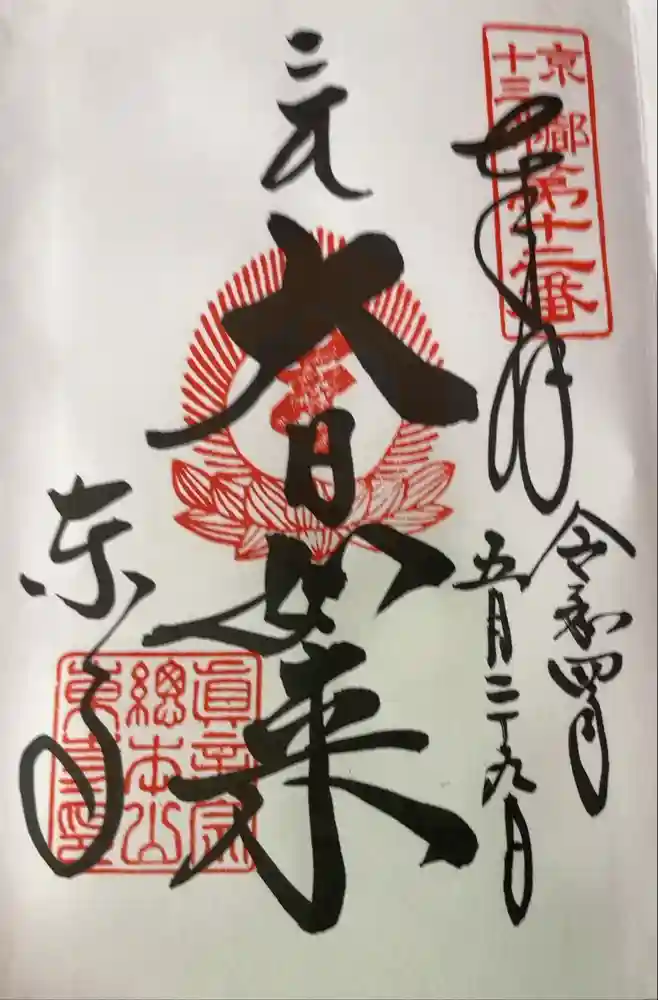 京都
十三
第十二番
奉拝
令和四年
五月二十九日
大日如来
東寺
眞言宗
總本山
東寺印